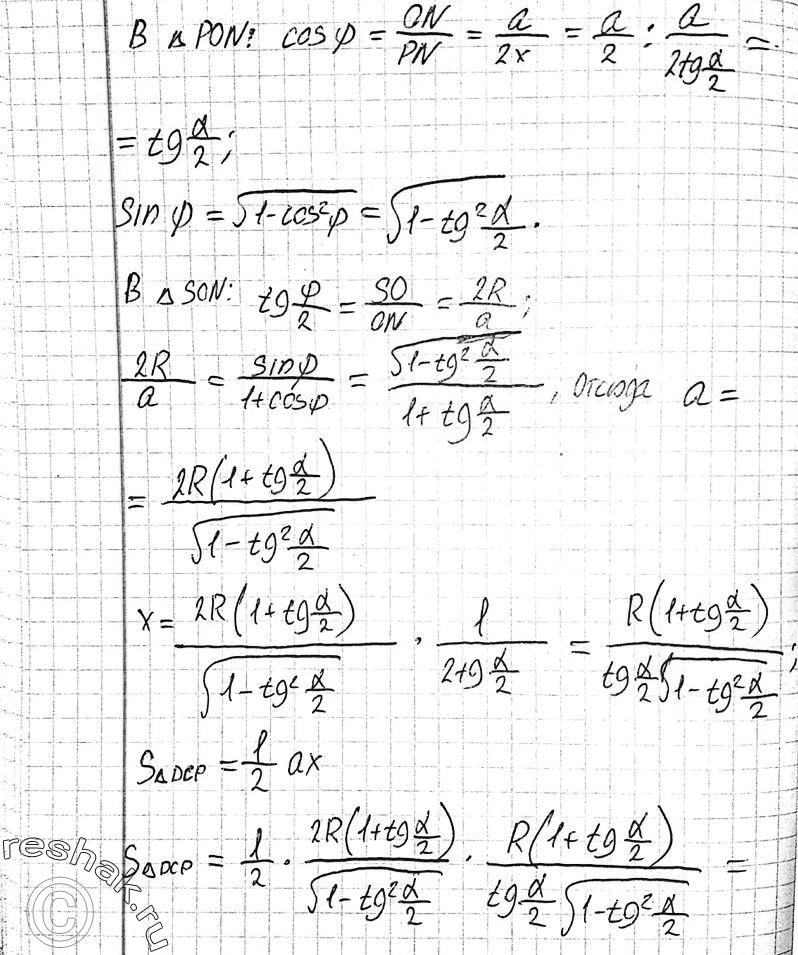 В △PON: cos φ = ON/PN = a/2x = a/2 : a/(2tg α/2) =
= tg α/2;
sin φ = √(1-cos²φ) = √(1-tg² α/2).
В △SON: tg φ/2 = SO/ON = 2R/a;
2R/a = sin φ/(1+cos φ) = √(1-tg² α/2)/(1+tg α/2), отсюда a =
= 2R(1+tg α/2)/√(1-tg² α/2)
x = 2R(1+tg α/2)/√(1-tg² α/2) · 1/(2tg α/2) = R(1+tg α/2)/(tg α/2 √(1-tg² α/2));
S△DCP = 1/2 ax
S△DCP = 1/2 · 2R(1+tg α/2)/√(1-tg² α/2) · R(1+tg α/2)/(tg α/2 √(1-tg² α/2)) =
reshak.ru
©